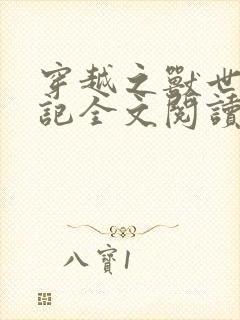 穿越之獸世
記全文閱讀
八寶1